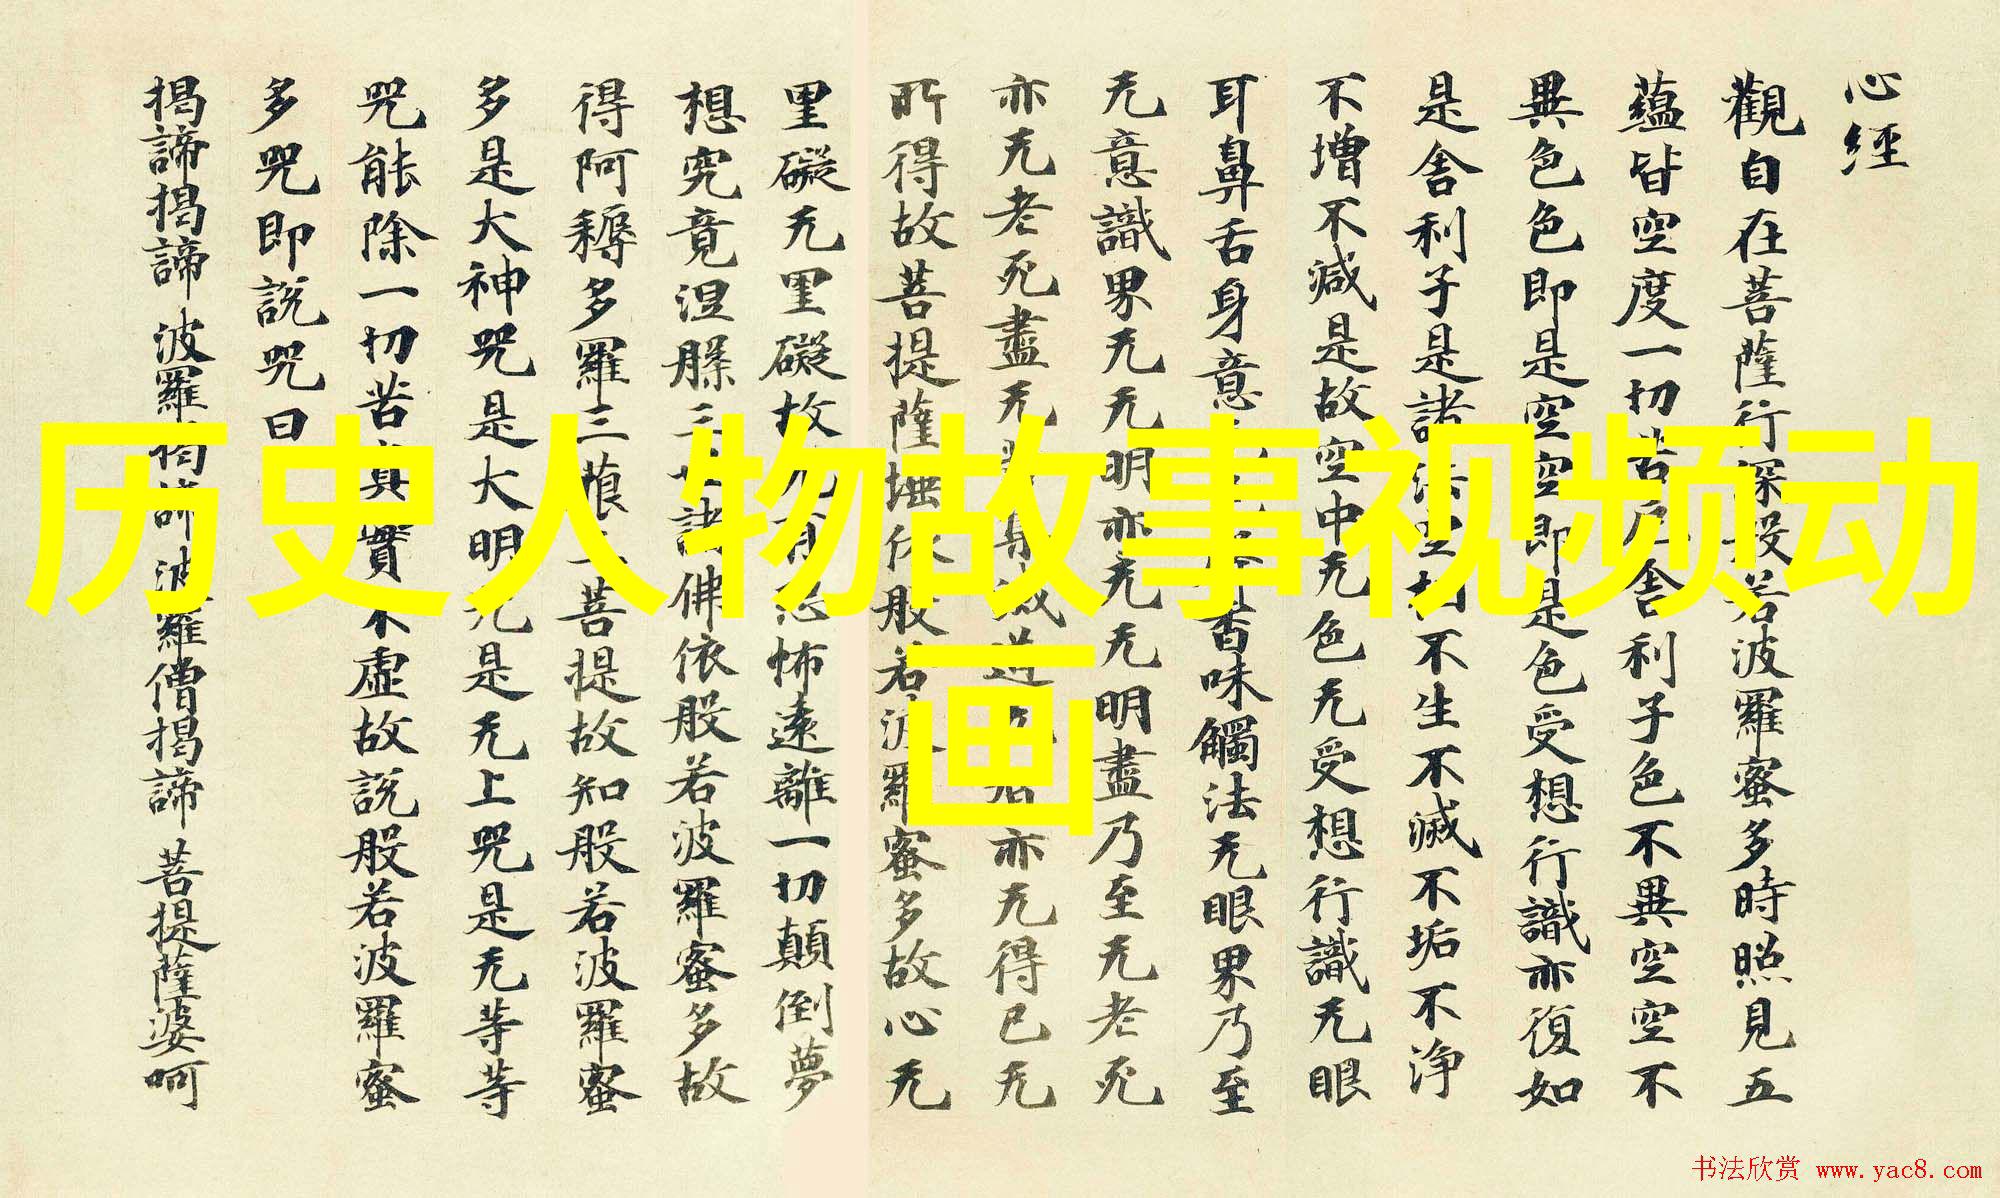 心經
觀自在菩薩行深般若波羅蜜多時照見五
蘊皆空度一切苦厄舍利子色不異空空不
異色色即是空空即是色受想行識亦復如
是舍利子是諸法空相不生不滅不垢不淨
不增不減是故空中无色无受想行識无眼
耳鼻舌身意香味觸法无眼界乃至
无意識界无无明亦无无明盡乃至无老死
亦无老死盡无滅道亦无得已无
所得故菩提薩埵依般若波羅蜜多故心无
罣礙无罣礙故有恐怖遠離一切顛倒夢
想究竟涅槃三世諸佛依般若波羅蜜多故
得阿耨多羅三藐三菩提故知般若波羅蜜
多是大神咒是大明咒是无上咒是无等等
咒能除一切苦真實不虛故說般若波羅蜜
多咒即說咒曰
揭諦揭諦 波羅揭諦 波羅僧揭諦 菩提薩婆呵
历史人物故事视频动
画
书法欣赏 www.yac8.com